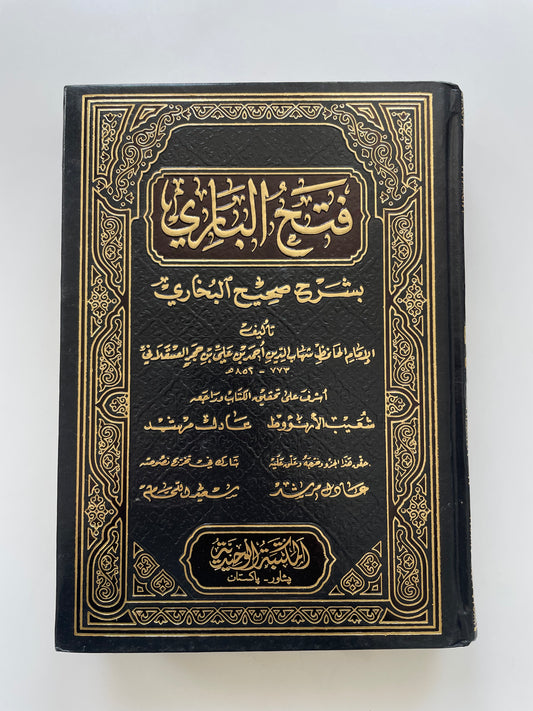 فَتْحُ البَارِي
بشرح صحيح البخاري
تأليف
الإمام الحافظ شهاب الدين أحمد بن علي بن حجر العسقلاني
٧٧٣ - ٨٥٢ هـ
أشرف على تحقيق الكتاب وراجعه
شعيب الأرنؤوط عادل مرشد
حقق هذا الجزء وخرجه وعلق عليه شارك في تخريج نصوصه
عادل مرشد سعيد اللحام
المكتبة الوحيدية
پشاور - پاکستان